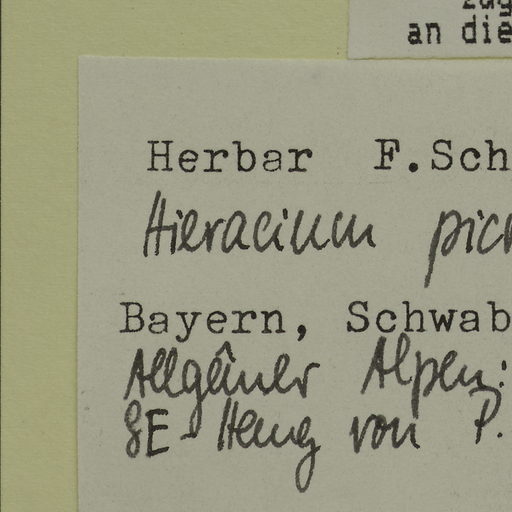 an die
Herbar F.Sch
Hieracium picr
Bayern, Schwab
Allgäuer Alpen:
SE-Hang von P.